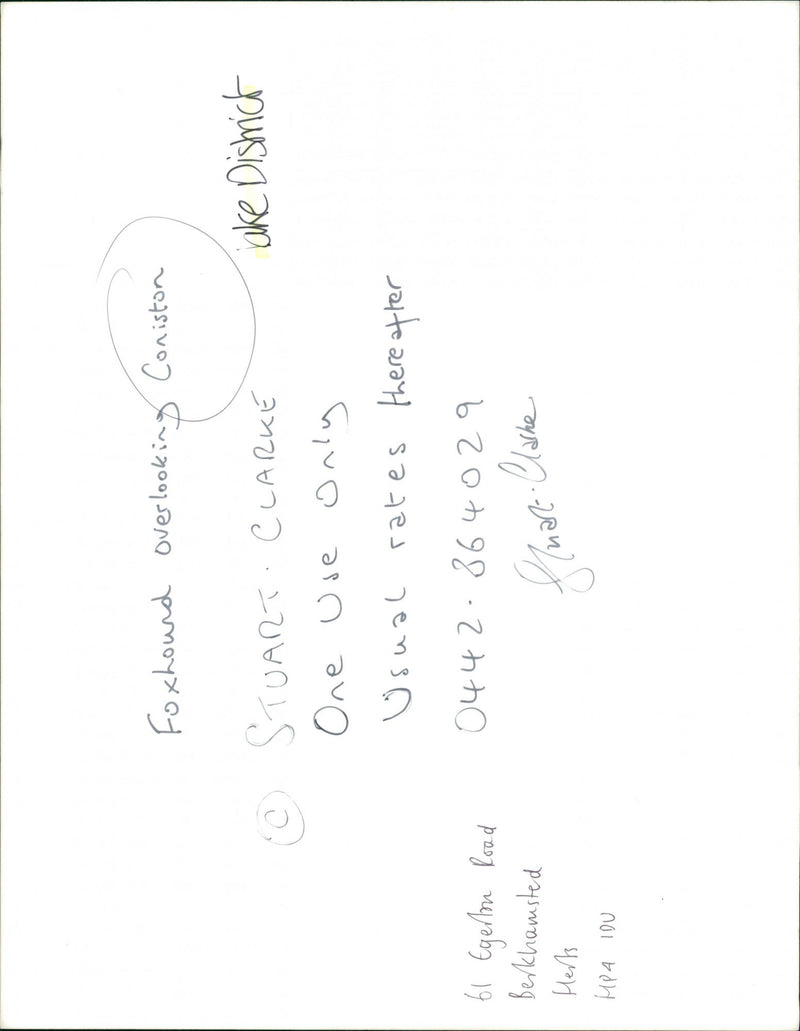 Foxhound overlooking Coniston
Lake District
© STUART. CLARKE
One Use Only
Usual rates thereafter
0442. 864029
Stuart. Clarke
61 Egerton Road
Berkhamsted
Herts
HP4 1DU